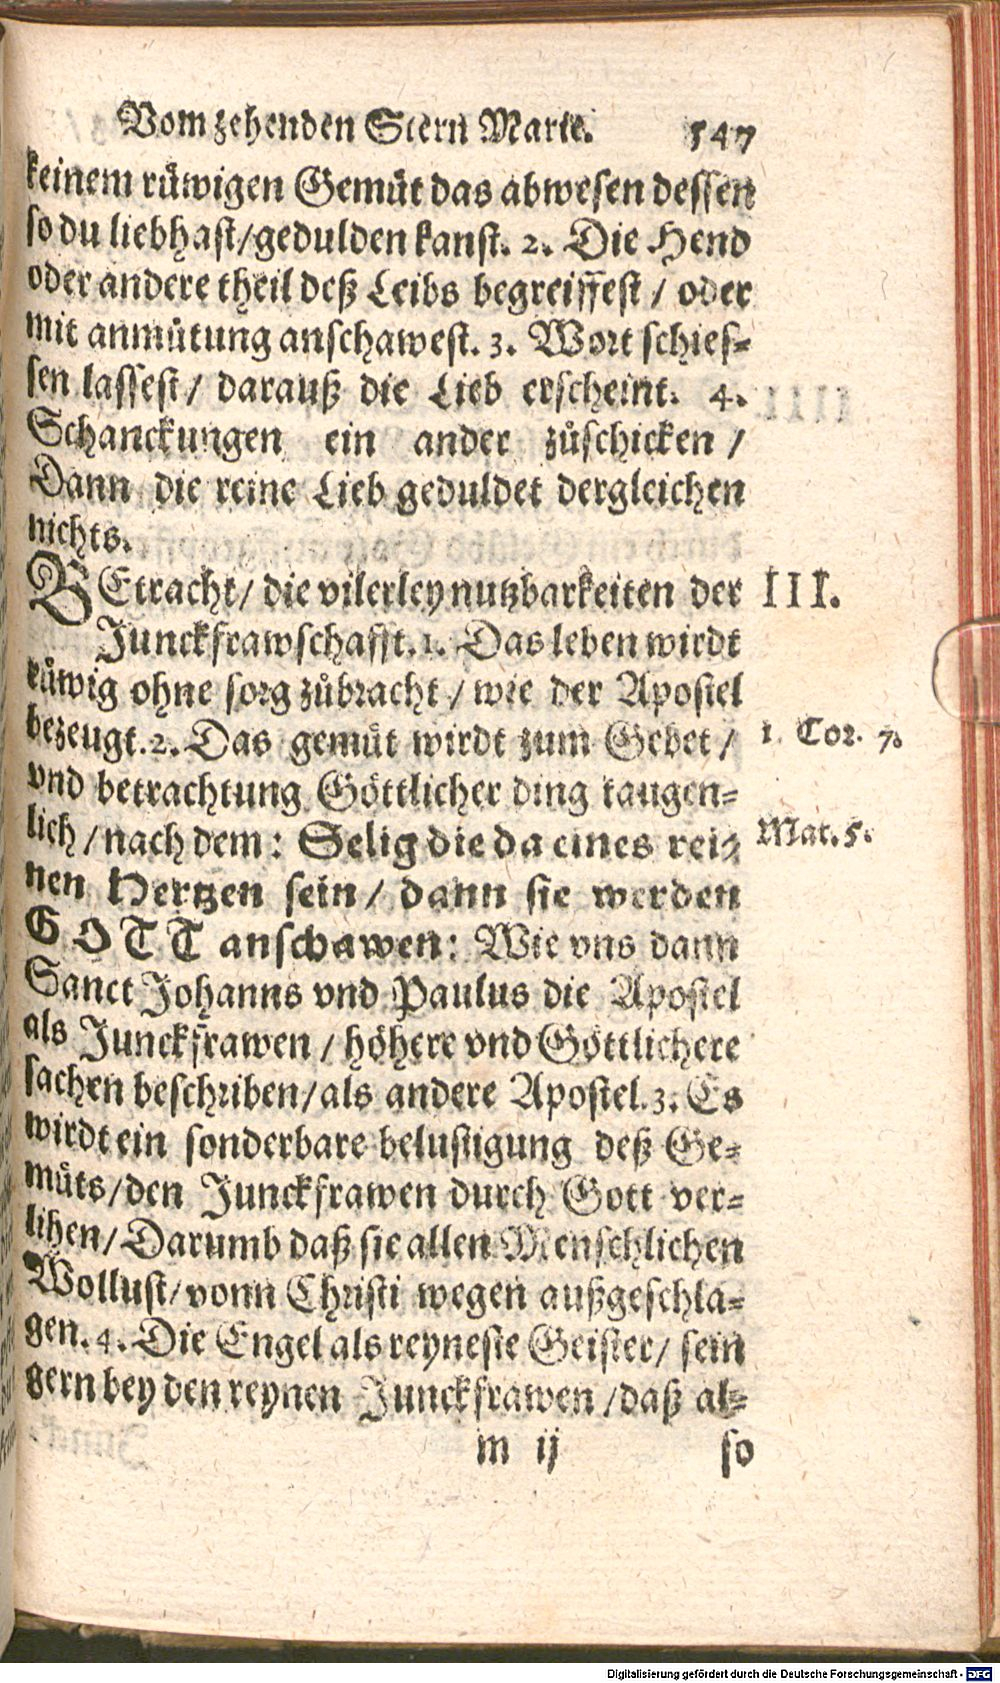 Vom zehenden Stern Marie. 547
keinem rüwigen Gemüt das abwesen dessen
so du liebhast/gedulden kanst. 2. Die Hend
oder andere theil deß Leibs begreiffest / oder
mit anmütung anschawest. 3. Wort schies-
sen lassest / darauß die Lieb erscheint. 4.
Schanckungen ein ander zůschicken /
Dann die reine Lieb geduldet dergleichen
nichts.
BEtracht / die vilerley nutzbarkeiten der III.
Junckfrawschafft. 1. Das leben wirdt
růwig ohne sorg zůbracht / wie der Apostel
bezeugt. 2. Das gemüt wirdt zum Gebet / 1. Cor. 7.
vnd betrachtung Göttlicher ding taugen-
lich / nach dem: Selig die da eines rei- Mat. 5.
nen Hertzen sein / dann sie werden
GOTT anschawen: Wie vns dann
Sanct Johanns vnd Paulus die Apostel
als Junckfrawen / höhere vnd Göttlichere
sachen beschriben / als andere Apostel. 3. Es
wirdt ein sonderbare belustigung deß Ge-
müts / den Junckfrawen durch Gott ver-
lihen / Darumb daß sie allen Menschlichen
Wollust / vonn Christi wegen außgeschla-
gen. 4. Die Engel als reyneste Geister / sein
gern bey den reynen Junckfrawen / daß al-
m ij so
Digitalisierung gefördert durch die Deutsche Forschungsgemeinschaft - DFG